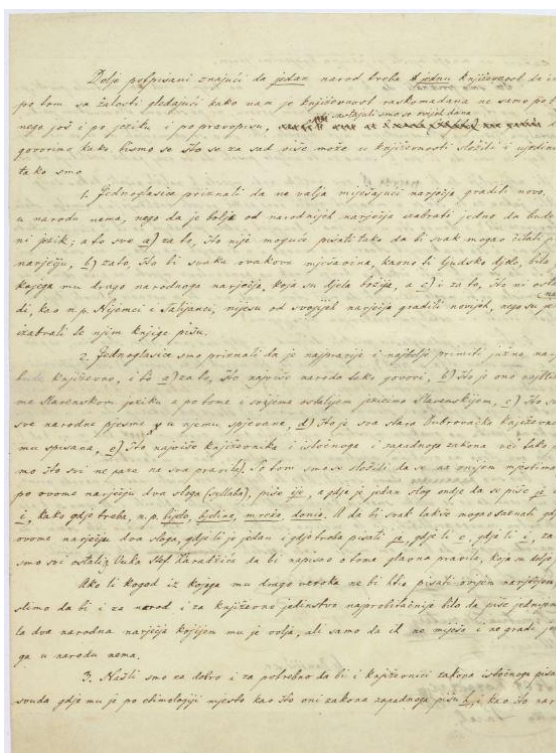 Dolje potpisani znajući da jedan narod treba jednu književnost da
po tom sa žalosti gledajući kako nam je književnost raskomadana ne samo po
nego još i po jeziku i po pravopisu, sastajali smo se ovijeh dana
govorimo kako bismo se što se za sad više može u književnosti složili i ujedini
tako smo
1. Jednoglasice priznali da ne valja miješajući narječja graditi novo,
u narodu nema, nego da je bolje od narodnijeh narječja izabrati jedno da bude
ni jezik; a to sve a) za to, što nije moguće pisati tako da bi svak mogao čitati po
narječju, b) zato, što bi svaka ovakova mješavina, kao no ti ljudsko djelo, bila
kojega mu drago narodnoga narječja, koja su djela božija, a c) i za to, što ni osta
di, kao n.p. Nijemci i Talijanci, nijesu od svojijeh narječja gradili novijeh, nego su je
izabrali te njim knjige pišu.
2. Jednoglasice smo priznali da je najpravije i najbolje primiti južno nar
bude književno, i to a) za to, što najviše naroda tako govori, b) što je ono najbli
me Slavenskom jeziku a po tome i svijema ostalijem jezicima Slavenskijem, c) što su
sve narodne pjesme u njemu spjevane, d) što je sva stara Dubrovačka književno
mu spisana, e) što najviše književnika i istočnoga i zapadnoga zakona već tako
mo što svi ne paze na sva pravila). Po tom smo se složili da se na onijem mjestima
po ovome narječju dva sloga (syllaba), piše ije, a gdje je jedan slog ondje da se piše je
i, kako gdje treba, n.p. bijelo, bjelina, mreža, donio. A da bi svak lakše mogao saznati gdj
ovome narječju dva sloga, gdje li je jedan i gdje treba pisati je, gdje li e, gdje li i, za
smo svi ostali, Vuka Stef. Karadžića da bi napisao o tome glavna pravila, koja su dolje
Ako li kogod iz kojega mu drago uzroka ne bi htio pisati ovijem narječjem
slimo da bi i za narod i za književno jedinstvo najprobitačnije bilo da piše jednijem
la dva narodna narječja kojijem mu je volja, ali samo da ih ne miješa i ne gradi je
ga u narodu nema.
3. Našli smo za dobro i za potrebno da bi i književnici zakona istočnoga pisa
svuda gdje mu je po etimologiji mjesto kao što oni zakona zapadnoga pišu h, i kao što nar